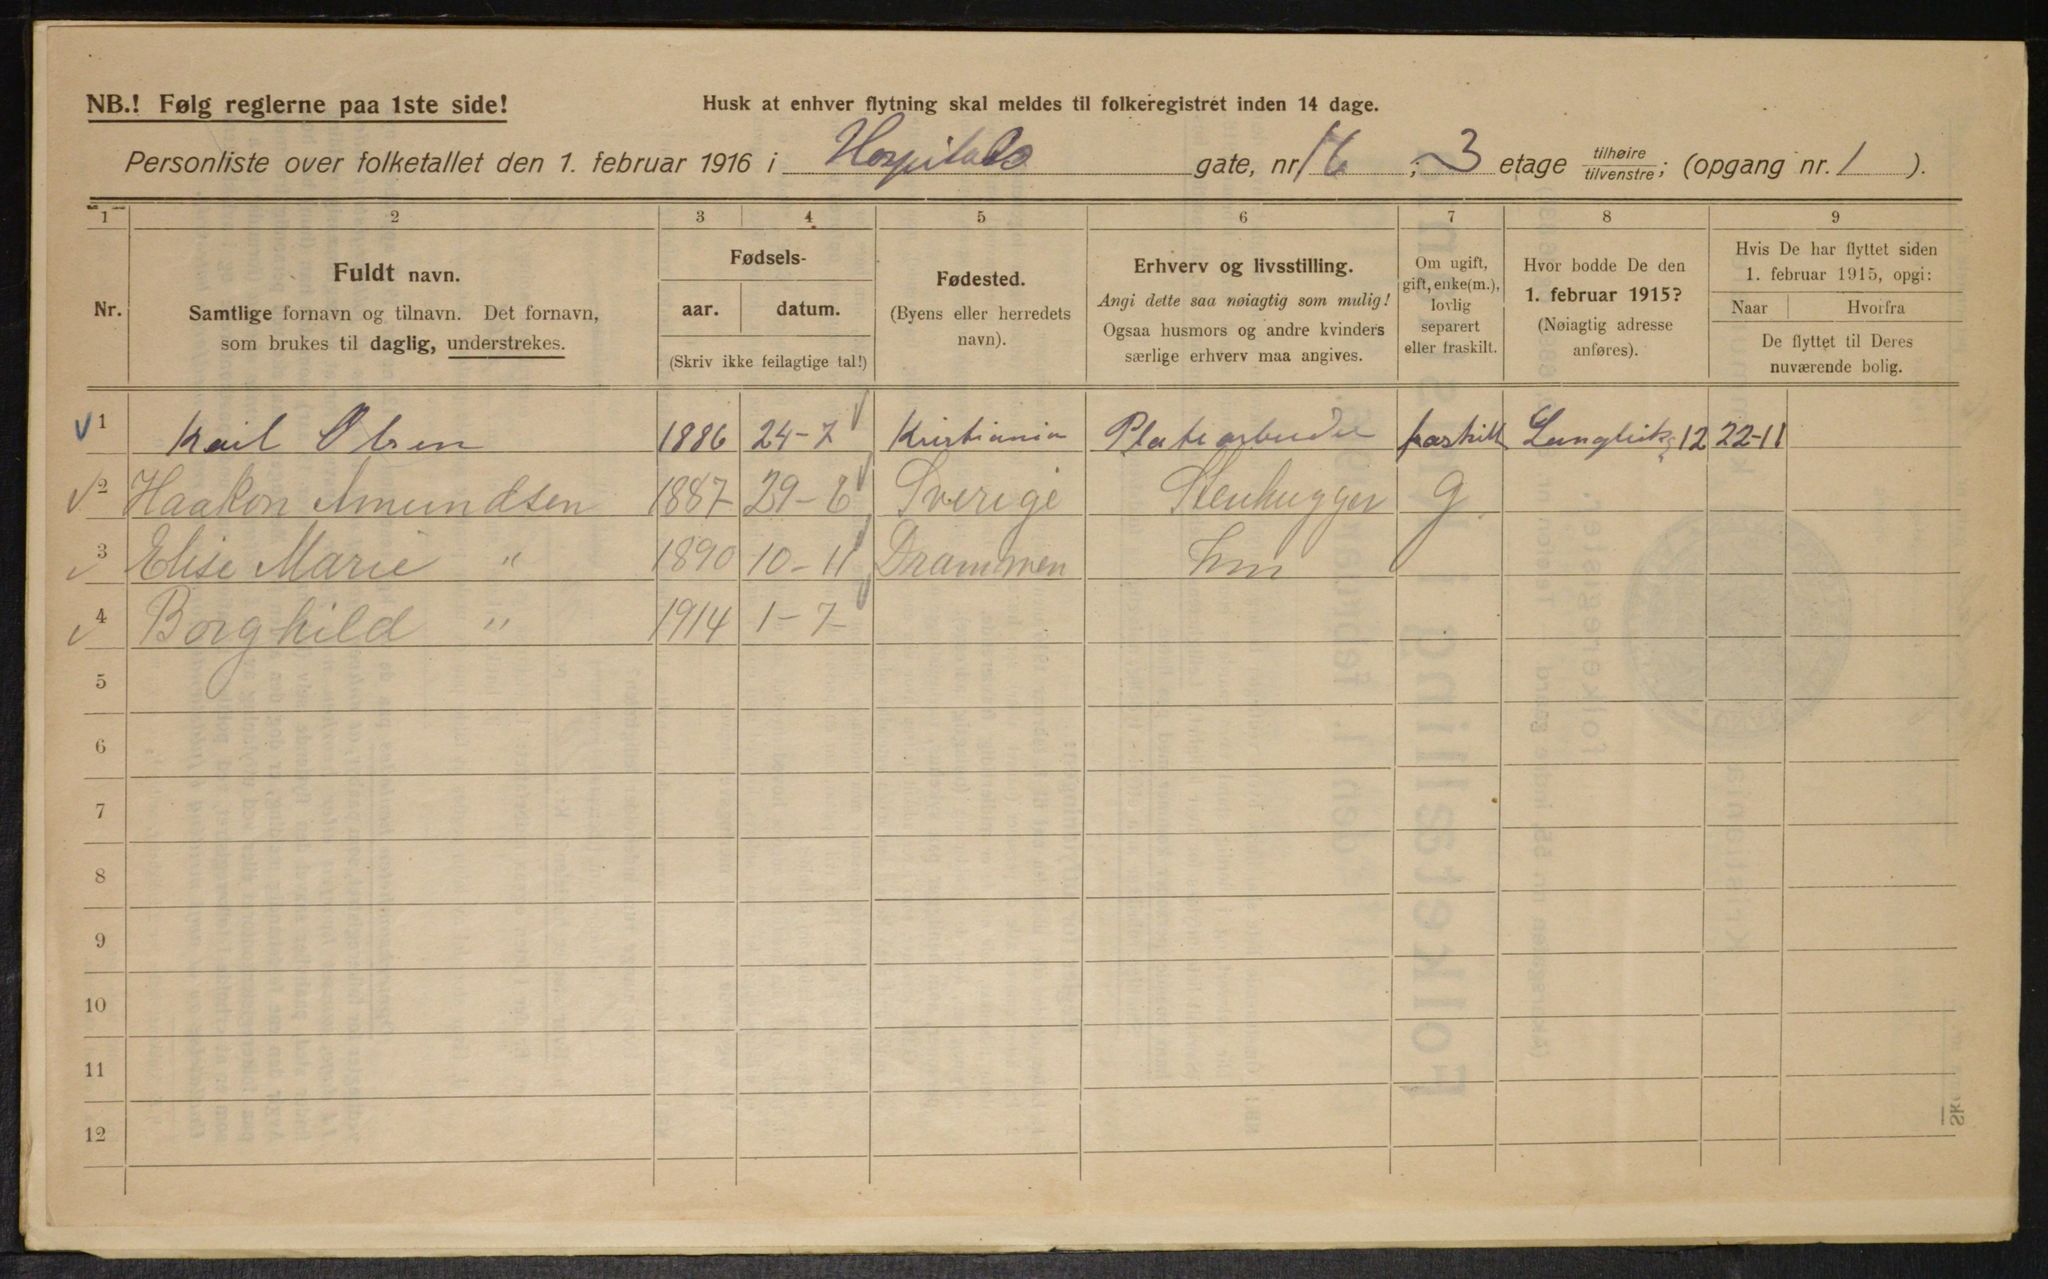 NB.! Følg reglerne paa 1ste side!
Husk at enhver flytning skal meldes til folkeregistret inden 14 dage.
Personliste over folketallet den 1. februar 1916 i Hospitals gate, nr. 16; 3 etage tilhøire tilvenstre; (opgang nr. 1 ).
1 2 3 4 5 6 7 8 9
Nr.
Fuldt navn.
Samtlige fornavn og tilnavn. Det fornavn,
som brukes til daglig, understrekes.
Fødsels-
aar. datum.
(Skriv ikke feilagtige tal!)
Fødested.
(Byens eller herredets
navn).
Erhverv og livsstilling.
Angi dette saa nøiagtig som mulig!
Ogsaa husmors og andre kvinders
særlige erhverv maa angives.
Om ugift,
gift, enke(m.),
lovlig
separert
eller fraskilt.
Hvor bodde De den
1. februar 1915?
(Nøiagtig adresse
anføres).
Hvis De har flyttet siden
1. februar 1915, opgi:
Naar Hvorfra
De flyttet til Deres
nuværende bolig.
1 Karl Olsen 1886 24-7 Kristiania Platearbeider fraskilt 12 22-11
2 Haakon Amundsen 1887 29-6 Sverige Stenhugger g
3 Elise Marie " 1890 10-11 Drammen hm
4 Borghild " 1914 1-7
5
6
7
8
9
10
11
12